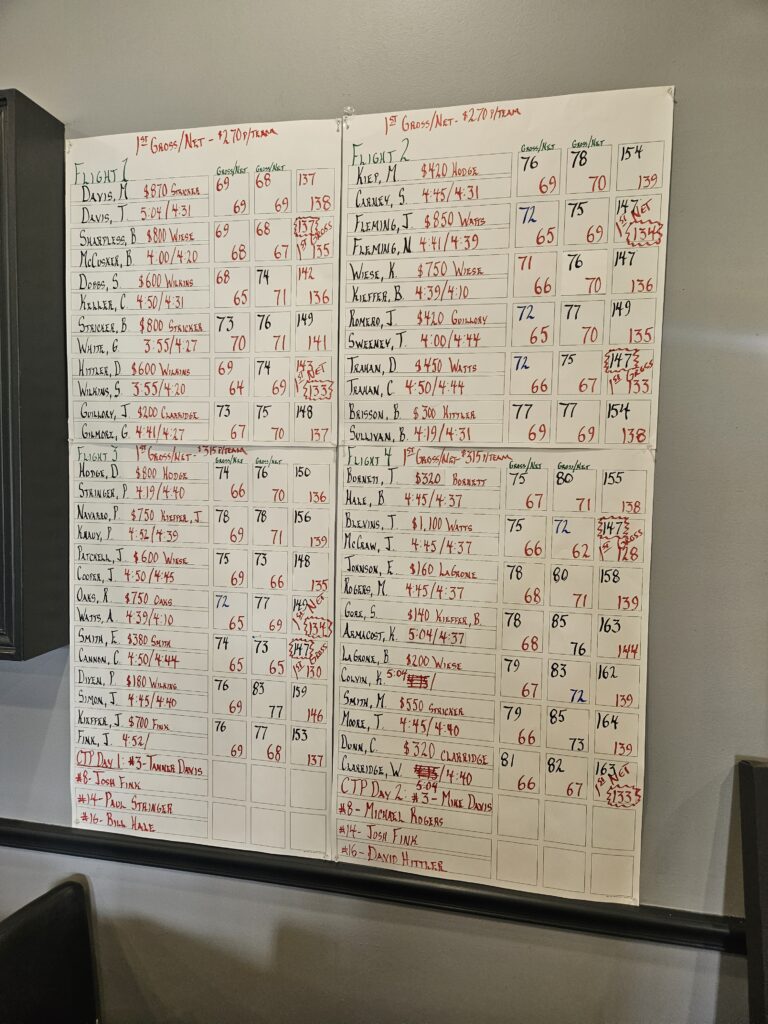 1ST GROSS/NET - $270 P/TEAM
FLIGHT 1 GROSS/NET GROSS/NET
DAVIS, M $870 STRICKER 69 68 137
DAVIS, T. 5:04/4:31 69 69 138
SHARPLESS, B $800 WIESE 69 68 137
MCCUSKER, B. 4:00/4:20 68 67 1ST GROSS 135
DOBBS, S. $600 WILKINS 68 74 142
KELLER, C. 4:50/4:31 65 71 136
STRICKER, B. $800 STRICKER 73 76 149
WHITE, G. 3:55/4:27 70 71 141
HITTLER, D $600 WILKINS 69 74 143
WILKINS, S. 3:55/4:20 64 69 1ST NET 133
GUILLORY, J. $200 CLARRIDGE 73 75 148
GILMORE, G. 4:41/4:27 67 70 137
1ST GROSS/NET - $270 P/TEAM
FLIGHT 2 GROSS/NET GROSS/NET
KIEP, M $420 HODGE 76 78 154
CARNEY, S. 4:45/4:31 69 70 139
FLEMING, J. $850 WATTS 72 75 147
FLEMING, N 4:41/4:39 65 69 1ST NET 134
WIESE, K. $750 WIESE 71 76 147
KIEFFER, B. 4:39/4:10 66 70 136
ROMERO, J. $420 GUILLORY 72 77 149
SWEENEY, T. 4:00/4:44 65 70 135
TRAHAN, D $450 WATTS 72 75 147
TRAHAN, C. 4:50/4:44 66 67 1ST GROSS 133
BRISSON, B. $300 HITTLER 77 77 154
SULLIVAN, B. 4:19/4:31 69 69 138
FLIGHT 3 1ST GROSS/NET - $315 P/TEAM
GROSS/NET GROSS/NET
HODGE, D $800 HODGE 74 76 150
STRINGER, P. 4:19/4:40 66 70 136
NAVARRO, P. $750 KIEFFER, J 78 78 156
KNAUP, P. 4:52/4:39 69 71 139
PATCHELL, J $600 WIESE 75 73 148
COOPER, J. 4:50/4:45 69 66 135
OAKS, R. $750 OAKS 72 77 149
WATTS, A. 4:39/4:10 65 69 1ST NET 134
SMITH, E. $380 SMITH 74 73 147
CANNON, C. 4:50/4:44 65 65 1ST GROSS 130
DIXEN, P. $180 WILKINS 76 83 159
SIMON, J. 4:45/4:40 69 77 146
KIEFFER, J $700 FINK 76 77 153
FINK, J. 4:52/ 69 68 137
CTP DAY 1: #3 - TANNER DAVIS
#8 - JOSH FINK
#14 - PAUL STRINGER
#16 - BILL HALE
FLIGHT 4 1ST GROSS/NET - $315 P/TEAM
GROSS/NET GROSS/NET
BORNETT, J $320 BORNETT 75 80 155
HALE, B 4:45/4:37 67 71 138
BLEVINS, J. $1,100 WATTS 75 72 147
MCGRAW, J. 4:45/4:37 66 62 1ST GROSS 128
JOHNSON, E. $160 LAGRONE 78 80 158
ROGERS, M. 4:45/4:37 68 71 139
GORE, S. $140 KIEFFER, B. 78 85 163
ARMACOST, K. 5:04/4:37 68 76 144
LAGRONE, B $200 WIESE 79 83 162
COLVIN, K. 5:04 / 67 72 139
SMITH, M. $550 STRICKER 79 85 164
MOORE, T. 4:45/4:40 66 73 139
DUNN, C. $320 CLARRIDGE 81 82 163
CLARRIDGE, W. 5:04/4:40 66 67 1ST NET 133
CTP DAY 2: #3 - MIKE DAVIS
#8 - MICHAEL ROGERS
#14 - JOSH FINK
#16 - DAVID HITTLER